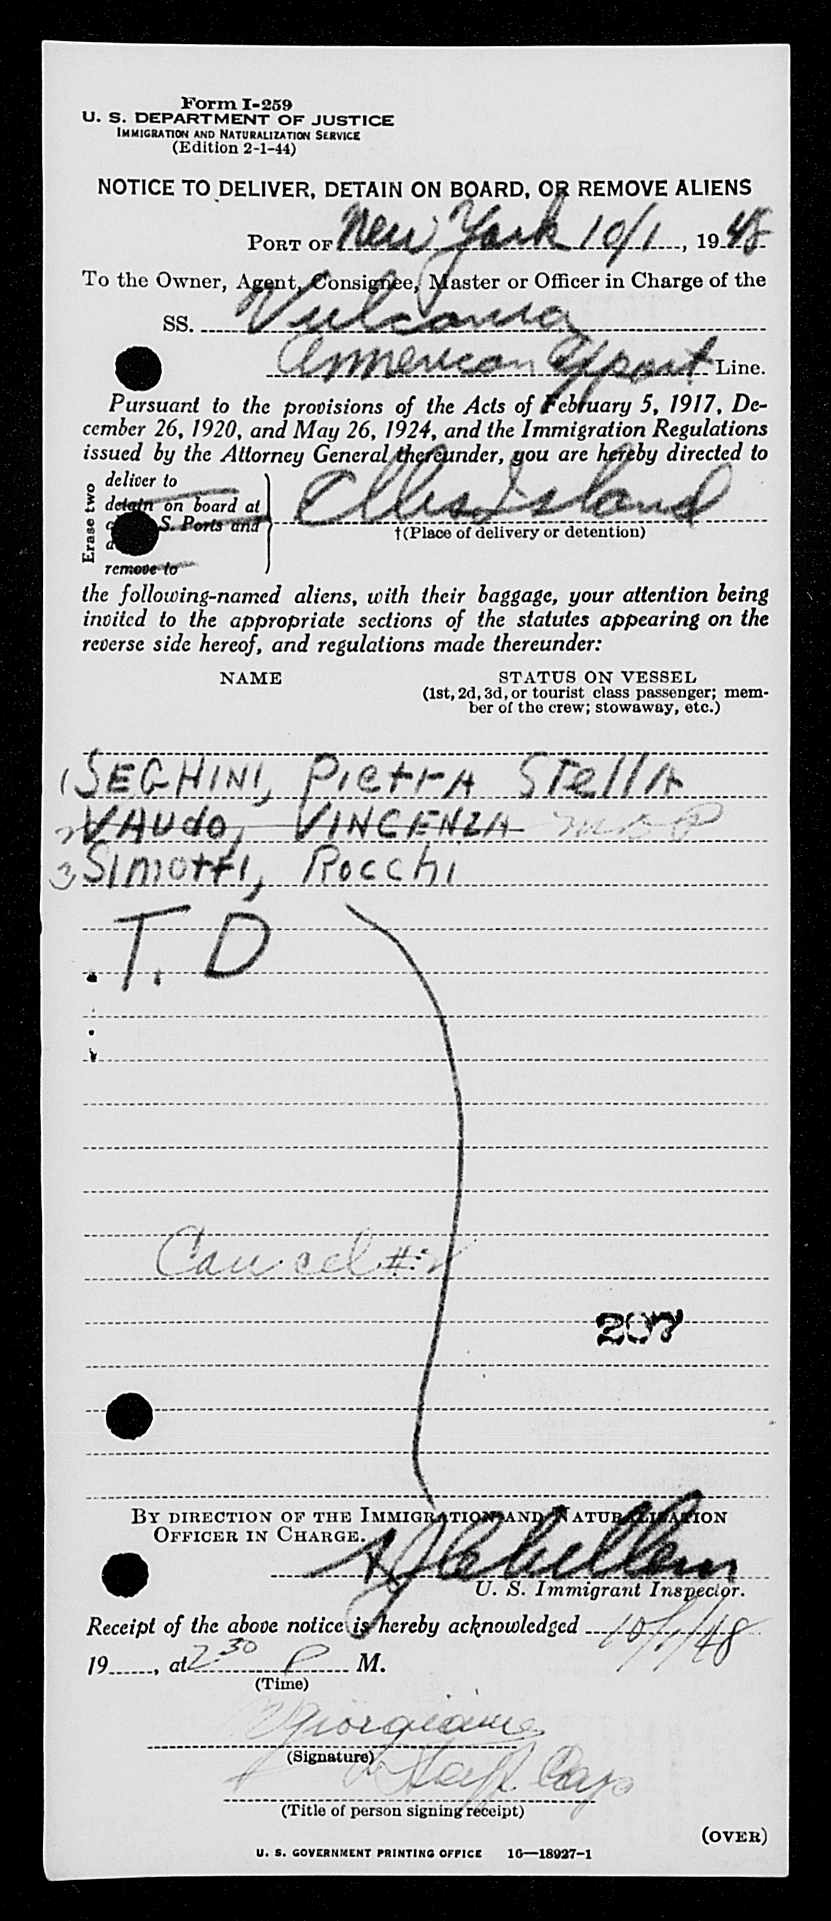 Form I-259
U. S. DEPARTMENT OF JUSTICE
IMMIGRATION AND NATURALIZATION SERVICE
(Edition 2-1-44)
NOTICE TO DELIVER, DETAIN ON BOARD, OR REMOVE ALIENS
PORT OF New York 10/1, 1948
To the Owner, Agent, Consignee, Master or Officer in Charge of the
SS. Vulcania
American Export Line.
Pursuant to the provisions of the Acts of February 5, 1917, De-
cember 26, 1920, and May 26, 1924, and the Immigration Regulations
issued by the Attorney General thereunder, you are hereby directed to
Erase two
deliver to
detain on board at
S. Ports and
remove to
Ellis Island
†(Place of delivery or detention)
the following-named aliens, with their baggage, your attention being
invited to the appropriate sections of the statutes appearing on the
reverse side hereof, and regulations made thereunder:
NAME STATUS ON VESSEL
(1st, 2d, 3d, or tourist class passenger; mem-
ber of the crew; stowaway, etc.)
1) SEGHINI, PietrA STellA
2) VAUdo, VINCENZA
3) SimottI, Rocchi
T. D
Cancel #2
207
BY DIRECTION OF THE IMMIGRATION AND NATURALIZATION
OFFICER IN CHARGE.
U. S. Immigrant Inspector.
Receipt of the above notice is hereby acknowledged 10/1/48
19, at 2 30 P M.
(Time)
(Signature)
Staff Capt
(Title of person signing receipt)
(OVER)
U. S. GOVERNMENT PRINTING OFFICE 16—18927-1